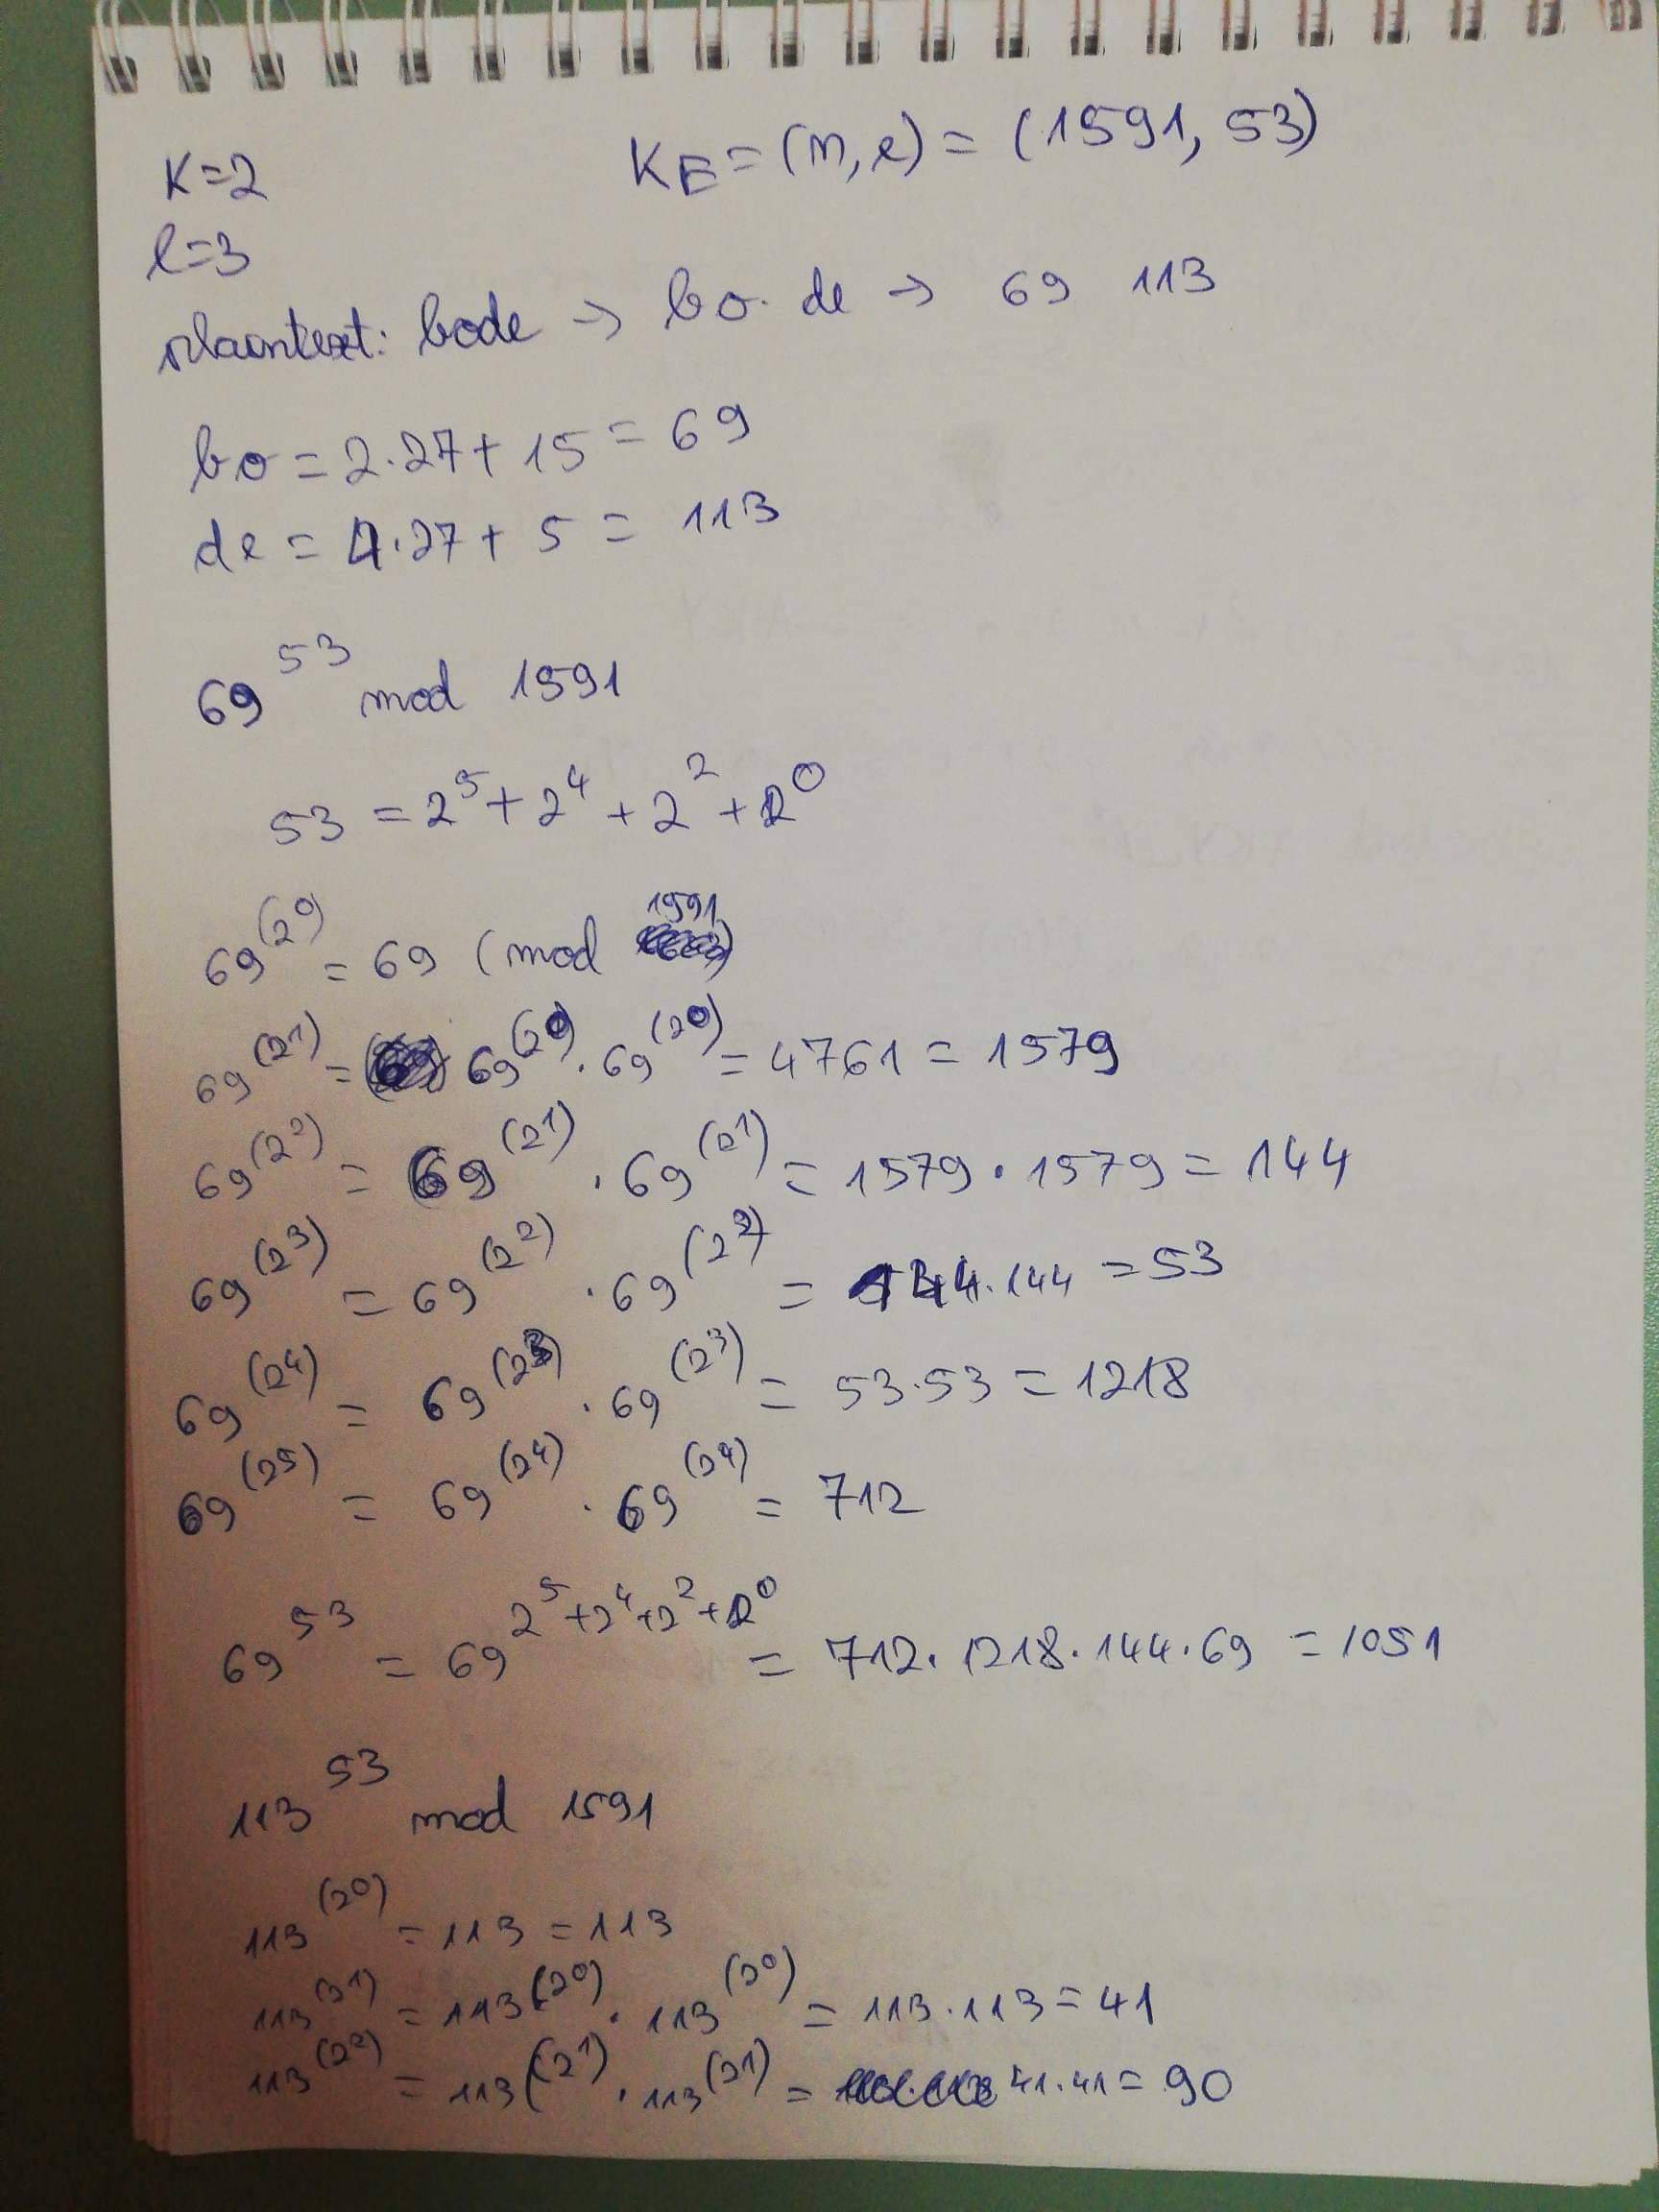 K=2 K_E = (n, e) = (1591, 53)
l=3
plaintext: bode → bo de → 69 113
bo = 2·27 + 15 = 69
de = 4·27 + 5 = 113
69^53 mod 1591
53 = 2^5 + 2^4 + 2^2 + 2^0
69^(2^0) = 69 (mod 1591)
69^(2^1) = 69^(2^0) · 69^(2^0) = 4761 = 1579
69^(2^2) = 69^(2^1) · 69^(2^1) = 1579 · 1579 = 144
69^(2^3) = 69^(2^2) · 69^(2^2) = 144 · 144 = 53
69^(2^4) = 69^(2^3) · 69^(2^3) = 53·53 = 1218
69^(2^5) = 69^(2^4) · 69^(2^4) = 712
69^53 = 69^2^5+2^4+2^2+2^0 = 712 · 1218 · 144 · 69 = 1051
113^53 mod 1591
113^(2^0) = 113 = 113
113^(2^1) = 113^(2^0) · 113^(2^0) = 113 · 113 = 41
113^(2^2) = 113^(2^1) · 113^(2^1) = 41·41 = 90